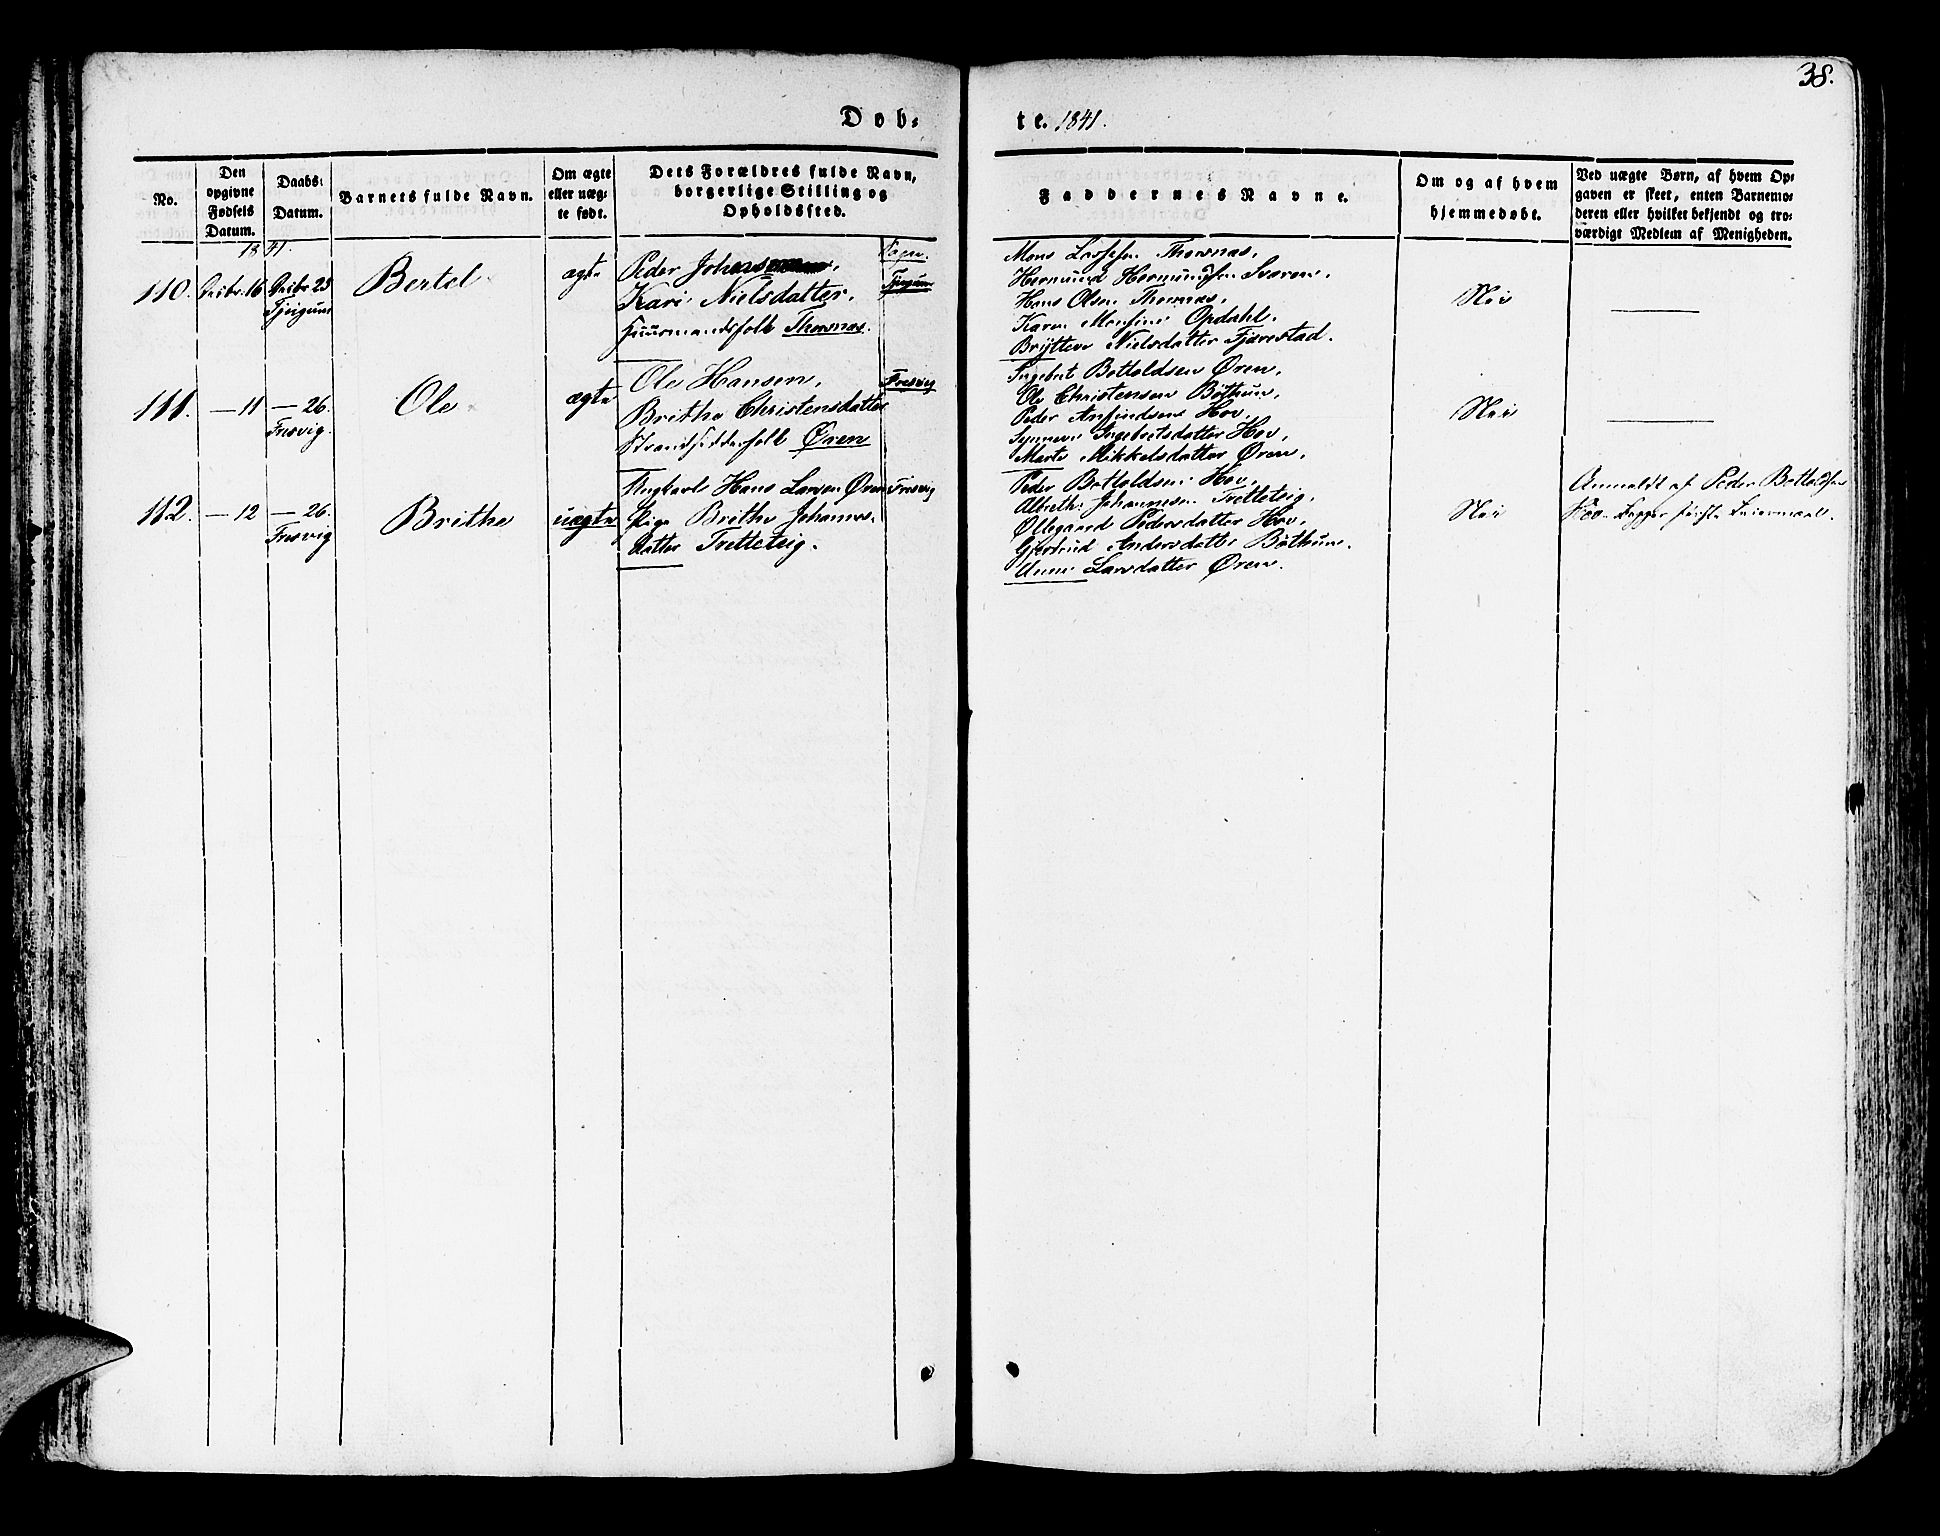 38.
Døb-
te. 1841.
No.
Den opgivne Fødsels Datum.
Daabs-Datum.
Barnets fulde Navn.
Om ægte eller uægte født.
Dets Forældres fulde Navn, borgerlige Stilling og Opholdssted.
Faddernes Navne.
Om og af hvem hjemmedøbt.
Ved uægte Børn, af hvem Opgaven er skeet, enten Barnemoderen eller hvilket bekjendt og troværdigt Medlem af Menigheden.
1841.
Sogn.
110.
16
23
Bertel
ægte
Peder
Kari Nielsdatter,
Huusmandsfolk Thorsnæs.
Mons Lassesen Thorsnæs,
Hermund Hermundsen Sværen,
Hans Olsen Thorsnæs,
Karen Monsine Opdahl,
Brytteva Nielsdatter Fjærestad.
Nei
111.
— 11
— 26.
Fresvig.
Ole
ægte
Ole Hansen,
Brithe Christensdatter
Strandsidderfolk Øren
Fresvig
Ingebret Botholdsen Øren,
Ole Christensen Bøthun,
Peder Anfindsen Hov,
Synneve Ingebretsdatter Hov,
Marte Mikkelsdatter Øren.
Nei
112.
— 12
— 26.
Fresvig
Brithe
uægte
Ungkarl Hans Larsen Øren
Pige Brithe Johannes-
datter Tretteteig.
Fresvig
Peder Botholdsen Hov,
Albrethe Johannesen Tretteteig,
Øllegaard Pedersdatter Hov,
Gjertrud Andersdatter Bøthun.
Anne Larsdatter Øren.
Nei
Anmeldt af Peder Botholdsen
Hov. Begges første Leiermaal.